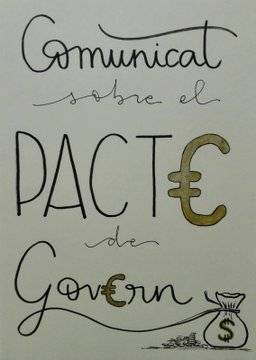 Comunicat
sobre el
PACT€
de
Gov€rn
$